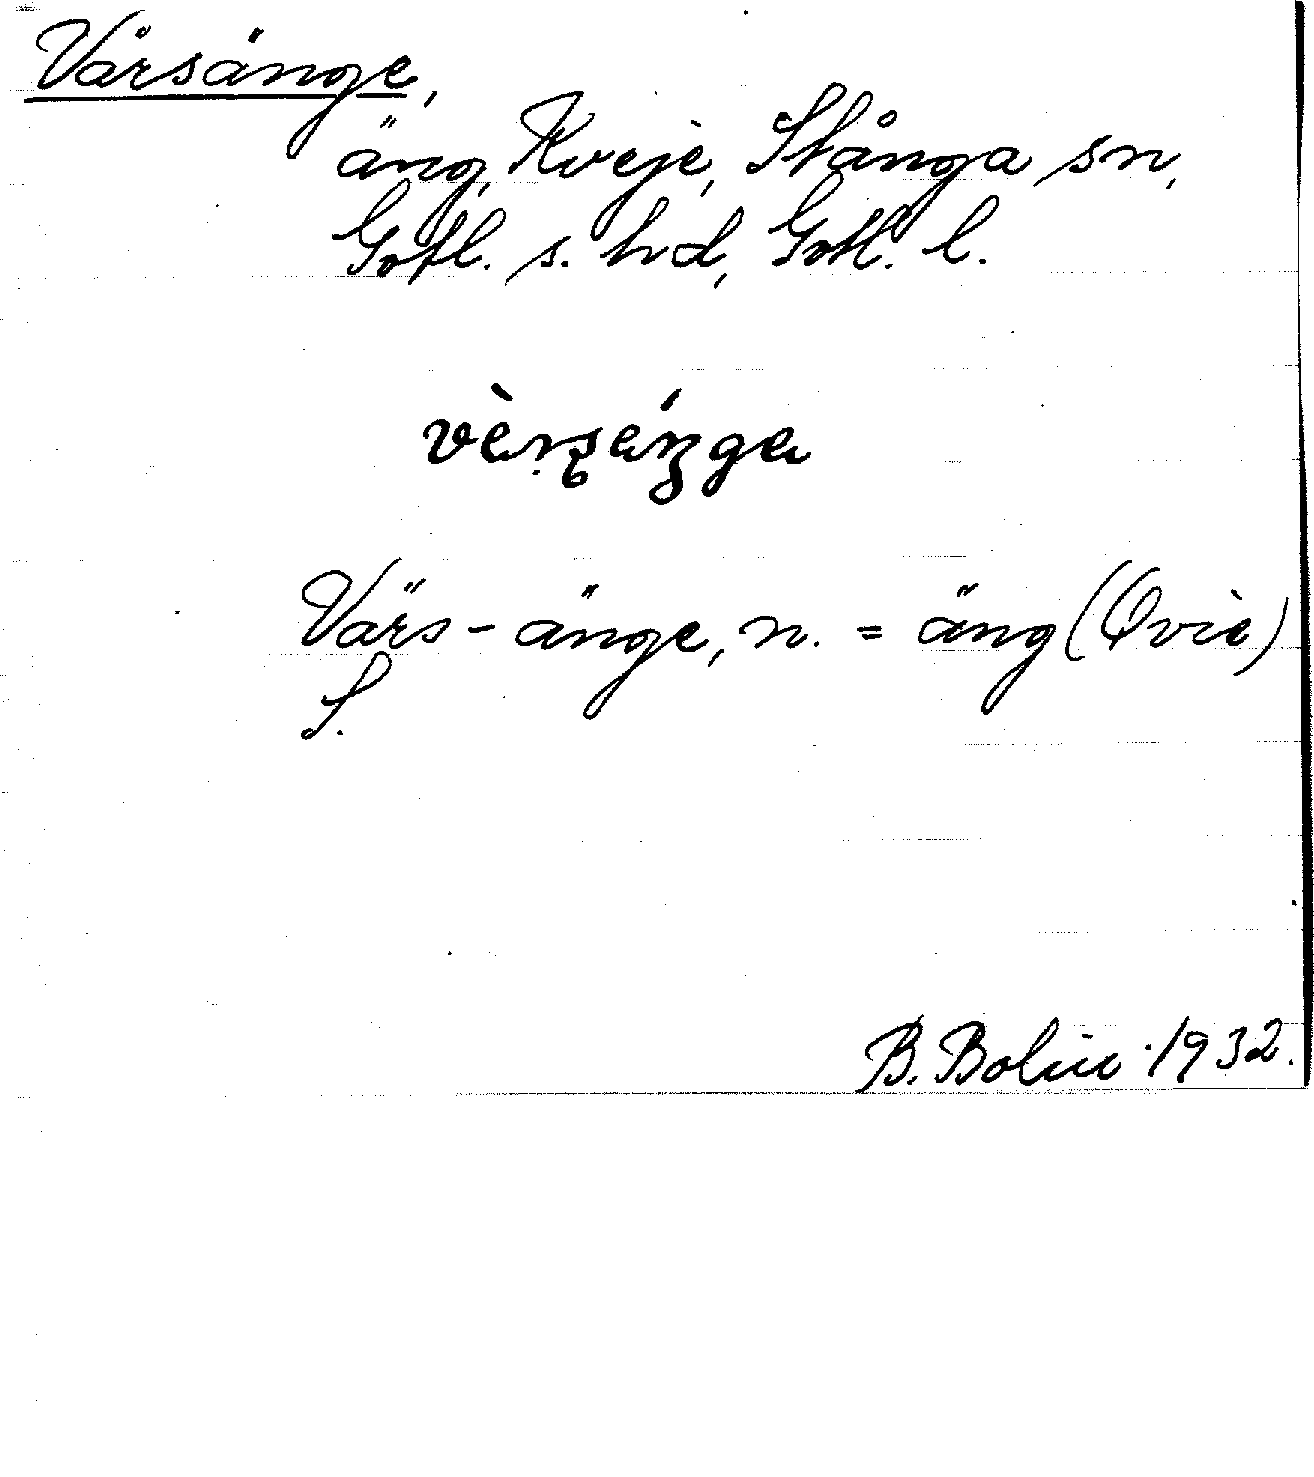 Värsänge,
äng, Kveje, Stånga sn,
Gotl. s. hd, Gotl. l.
Värs-änge, n. = äng (Qvie)
S.
B. Bolin 1932.